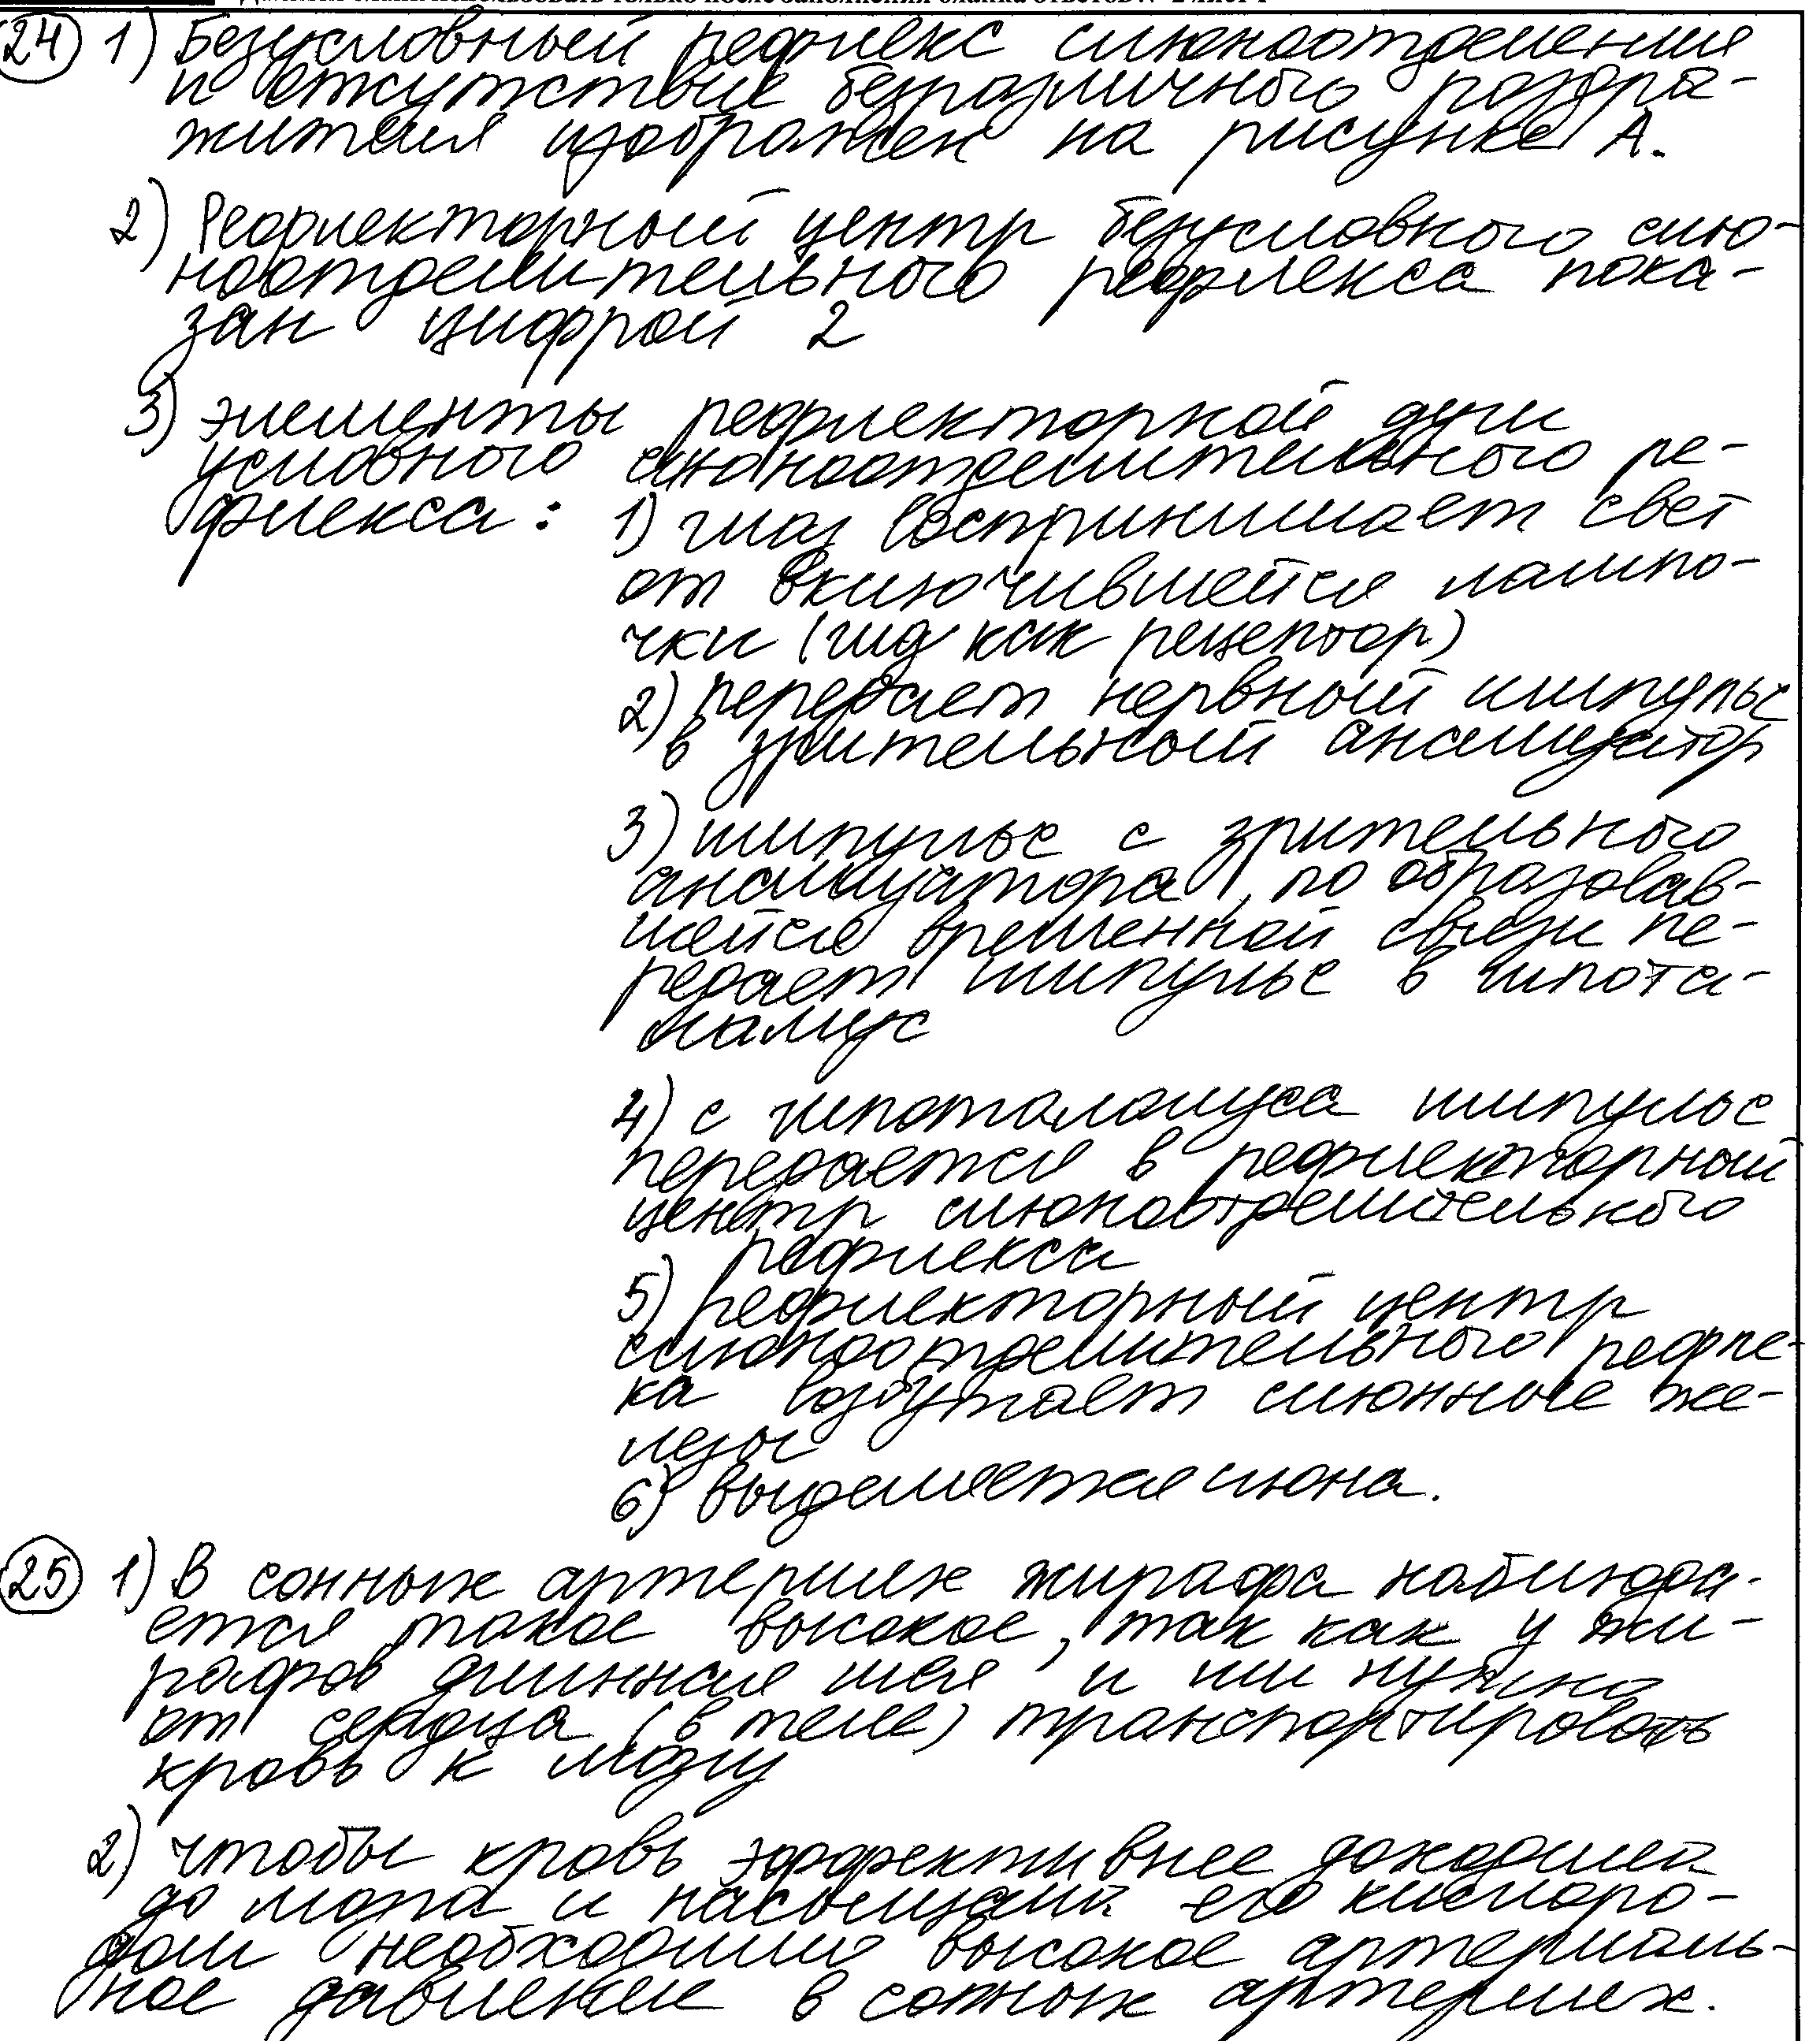 24 1) Безусловный рефлекс слюноотделения
и отсутствие безразличного раздра-
жителя изображен на рисунке А.
2) Рефлекторный центр безусловного слю-
ноотделительного рефлекса пока-
зан цифрой 2
3) элементы рефлекторной дуги
условного слюноотделительного ре-
флекса: 1) глаз воспринимает свет
от включившейся лампо-
чки (глаз как рецептор)
2) передает нервный импульс
в зрительный анализатор
3) импульс с зрительного
анализатора, по образовав-
шейся временной связи пе-
редает импульс в гипота-
ламус
4) с гипоталамуса импульс
передается в рефлекторный
центр слюноотделительного
рефлекса
5) рефлекторный центр
слюноотделительного рефле-
ка возбуждает слюнные же-
лезы
6) выделяется слюна.
25 1) В сонных артериях жирафа наблюда-
ется такое высокое, так как у жи-
рафов длинная шея и им нужно
от сердца (в теле) транспортировать
кровь к мозгу
2) чтобы кровь эффективнее доходила
до мозга и насыщала его кислоро-
дом необходимо высокое артериаль-
ное давление в сонных артериях.